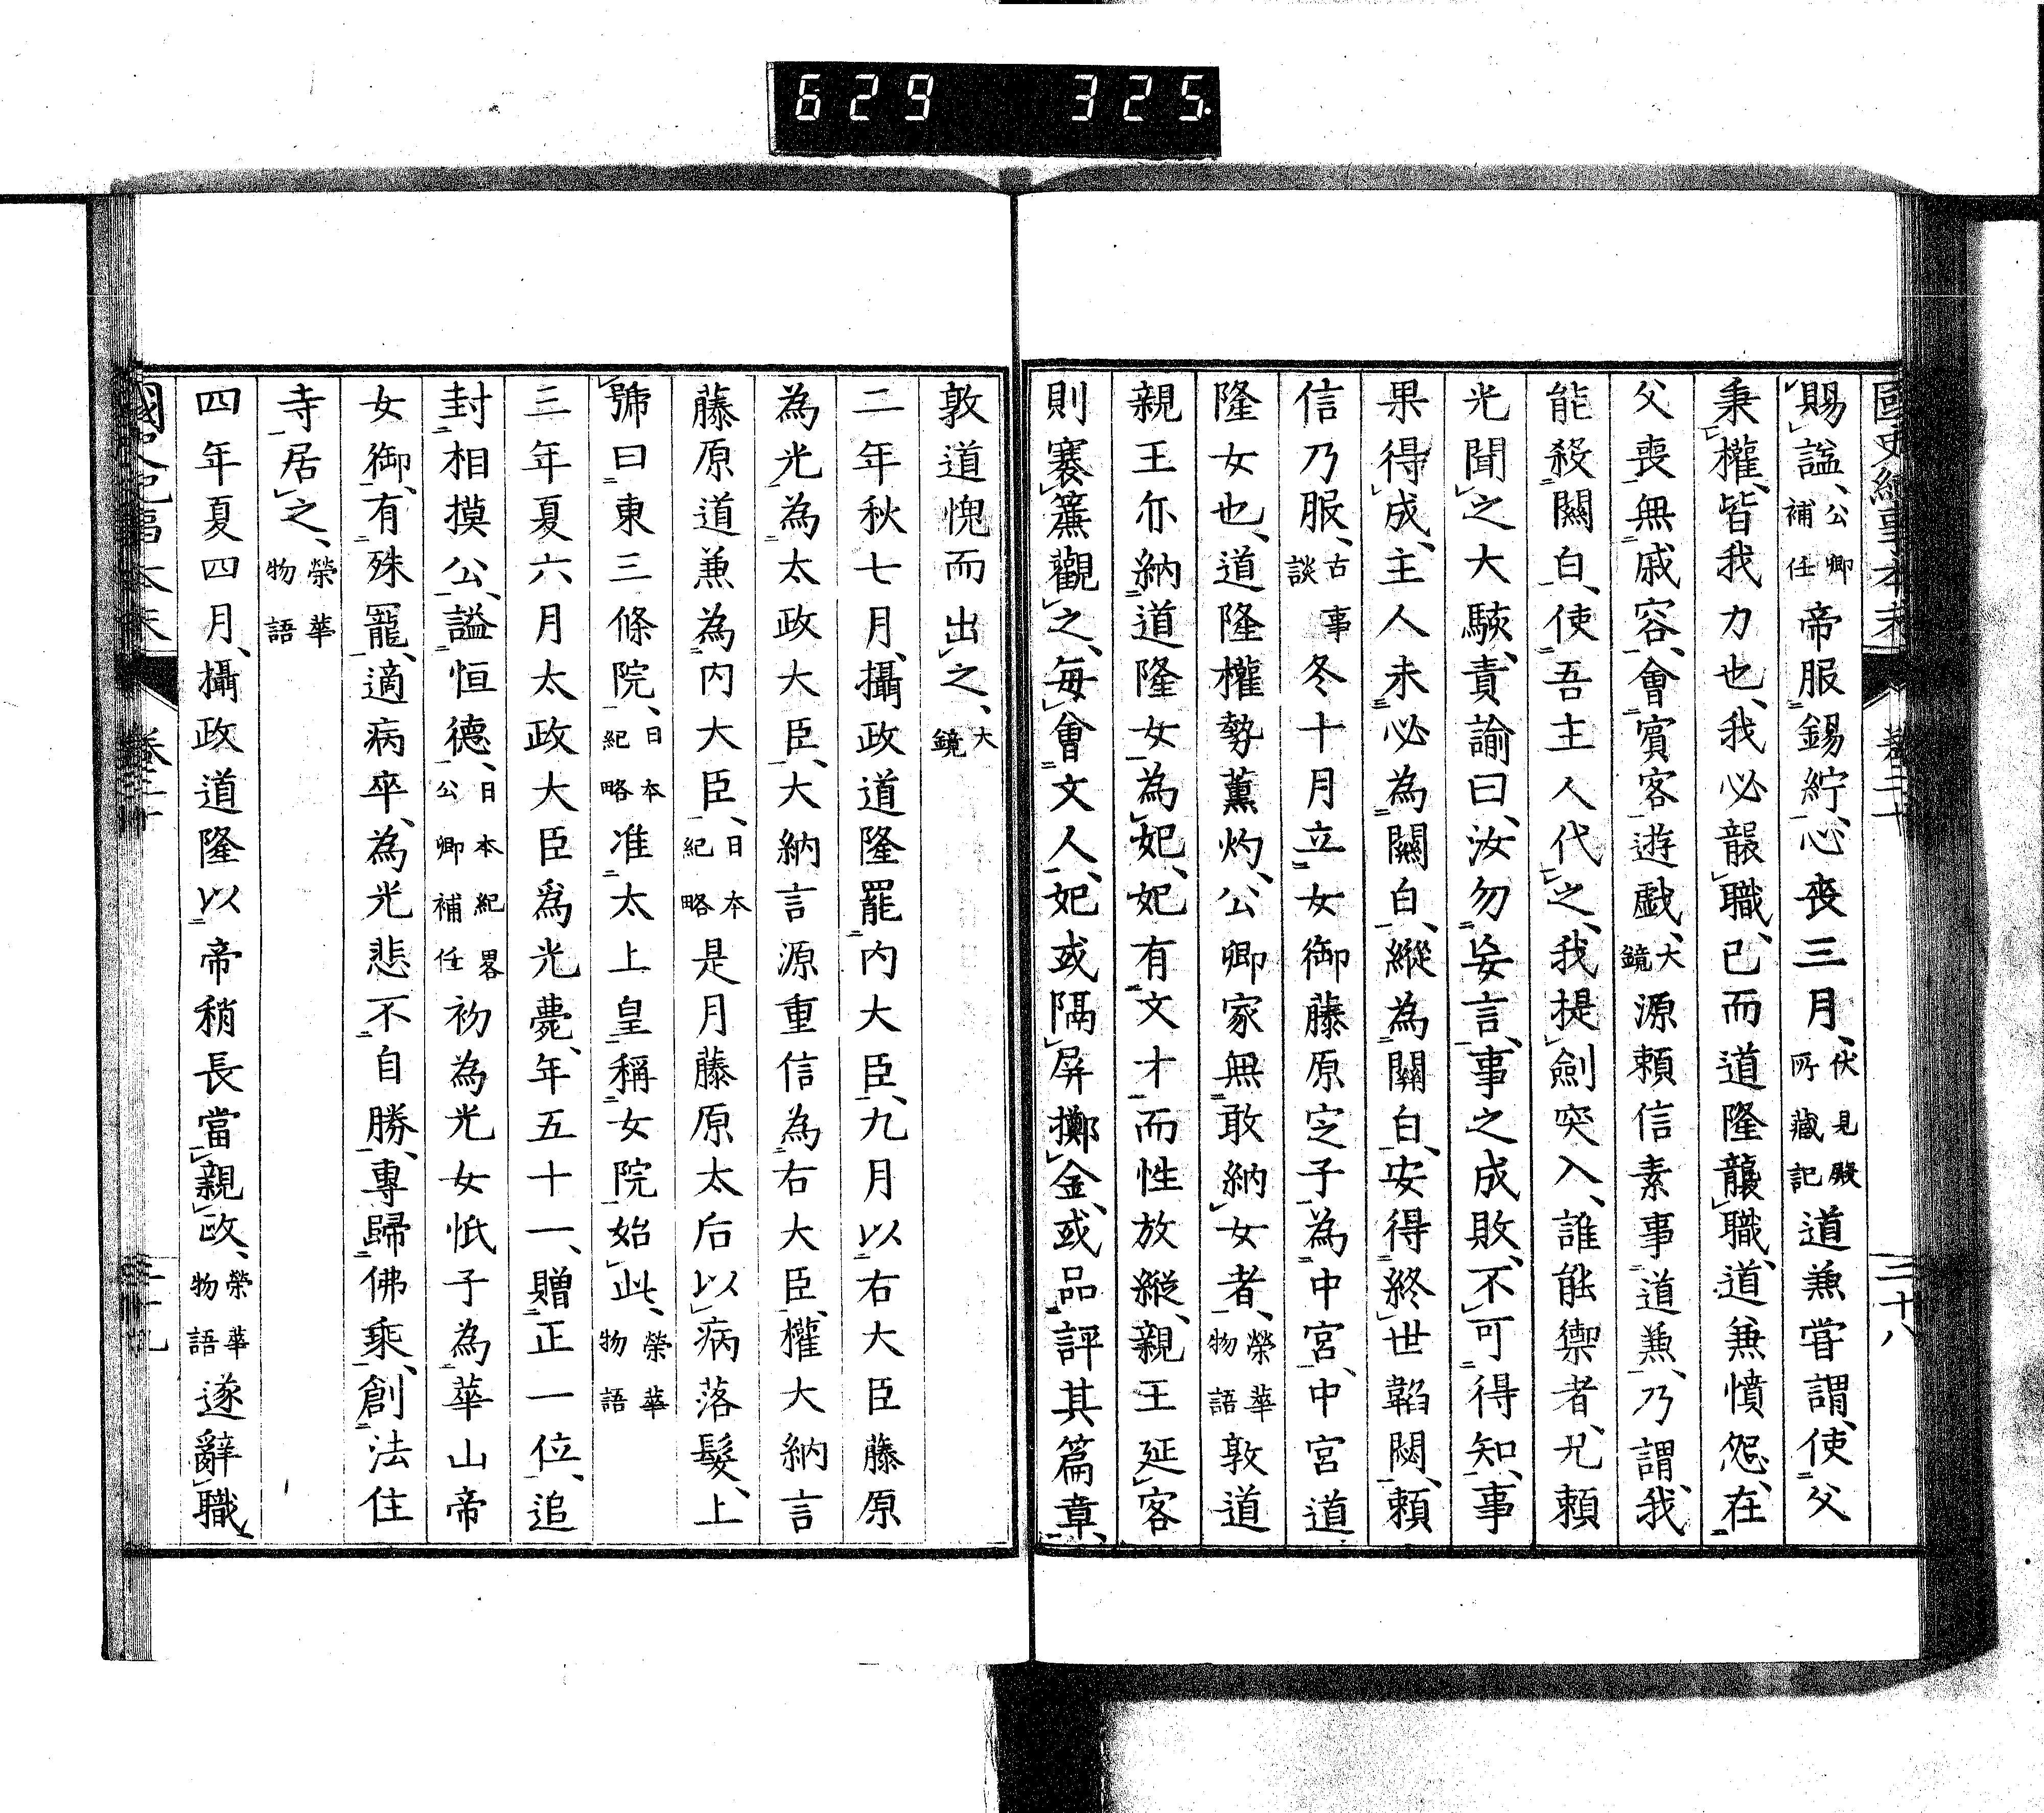 629 325
國史紀事本末 卷二十 三十八
賜謚、公卿補任帝服錫紵、心喪三月、伏見殿所藏記道兼甞謂、使父
秉權、皆我力也、我必襲職、已而道隆襲職、道兼憤怨、在
父喪無戚容、會賓客遊戲、大鏡源頼信素事道兼、乃謂、我
能殺關白、使吾主人代之、我提劍突入、誰能禦者、兄頼
光聞之大駭、責諭曰、汝勿妄言、事之成敗、不可得知、事
果得成、主人未必為關白、縱為關白、安得終世韜閟、頼
信乃服、古事談冬十月立女御藤原定子為中宮、中宮道
隆女也、道隆權勢薰灼、公卿家無敢納女者、榮華物語敦道
親王亦納道隆女為妃、妃有文才而性放縱、親王延客
則褰簾觀之、每會文人、妃或隔屏擲金、或品評其篇章、
敦道愧而出之、大鏡
二年秋七月、攝政道隆罷內大臣、九月以右大臣藤原
為光為太政大臣、大納言源重信為右大臣、權大納言
藤原道兼為內大臣、日本紀略是月藤原太后以病落髮、上
號曰東三條院、日本紀略准太上皇稱女院始此、榮華物語
三年夏六月太政大臣爲光薨、年五十一、贈正一位、追
封相摸公、謚恒德、日本紀畧公卿補任初為光女忯子為華山帝
女御、有殊寵、適病卒、為光悲不自勝、專歸佛乘、創法住
寺居之、榮華物語
四年夏四月、攝政道隆以帝稍長當親政、榮華物語遂辭職、
國史紀事本末 卷二十 三十九